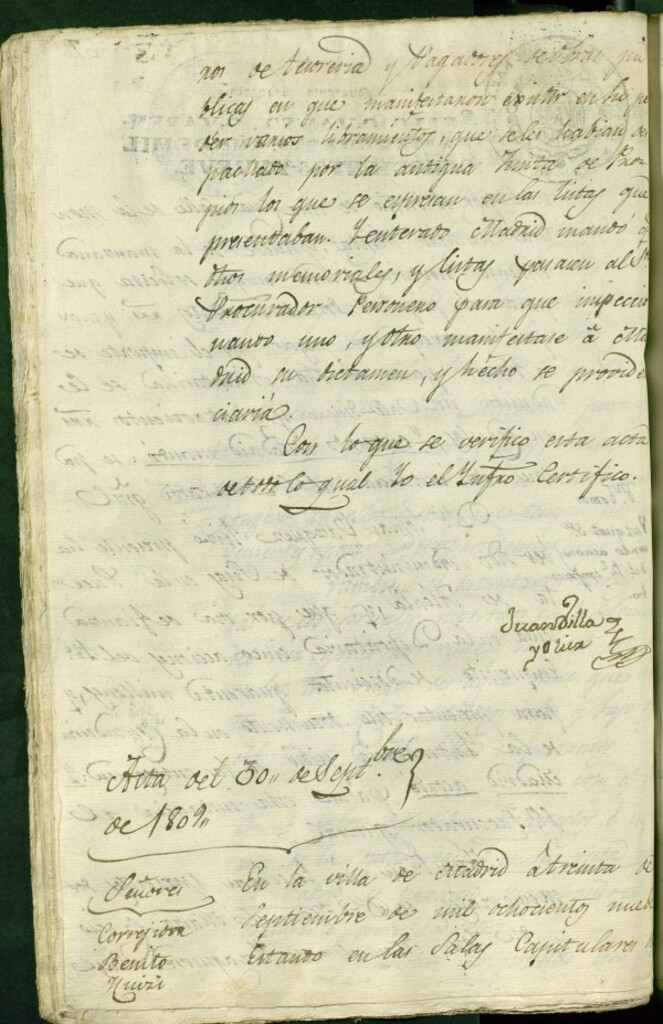 ros de tesoreria y Pagadores de obras pu
blicas en que manifestaron existir en su po
der varios libramientos, que se les habian des
pachado por la antigua Junta de Pro
pios los que se expresan en las listas que
presentaban. Y enterado Madrid mandó q.e
otros memoriales, y listas pasasen al S.or
Procurador Personero para que inspeccio
nando uno, y otro manifestase â Ma
drid su dictamen, y hecho se providen
ciaria.
Con lo que se verifico esta acta
de lo qual Yo el Ynfro Certifico.
Juan Villa
y Olier
Acta del 30,, de Sept.bre
de 1809,,
Señores
Corregidor
Benito
En la villa de Madrid â treinta de
Septiembre de mil ochocientos nueve
Estando en las Salas Capitulares